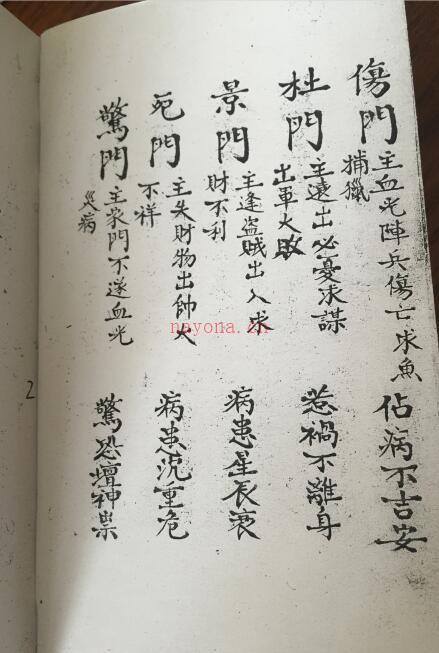 傷門 主血光陣兵傷亡求魚
捕獵
佔病不吉安
杜門 主遠出必憂求謀
出軍大敗
惹禍不離身
景門 主逢盜賊出入求
財不利
病患星辰衰
死門 主失財物出帥大
不祥
病患沉重危
驚門 主家門不遂血光
災病
驚恐壇神祟
2
nayona.cn